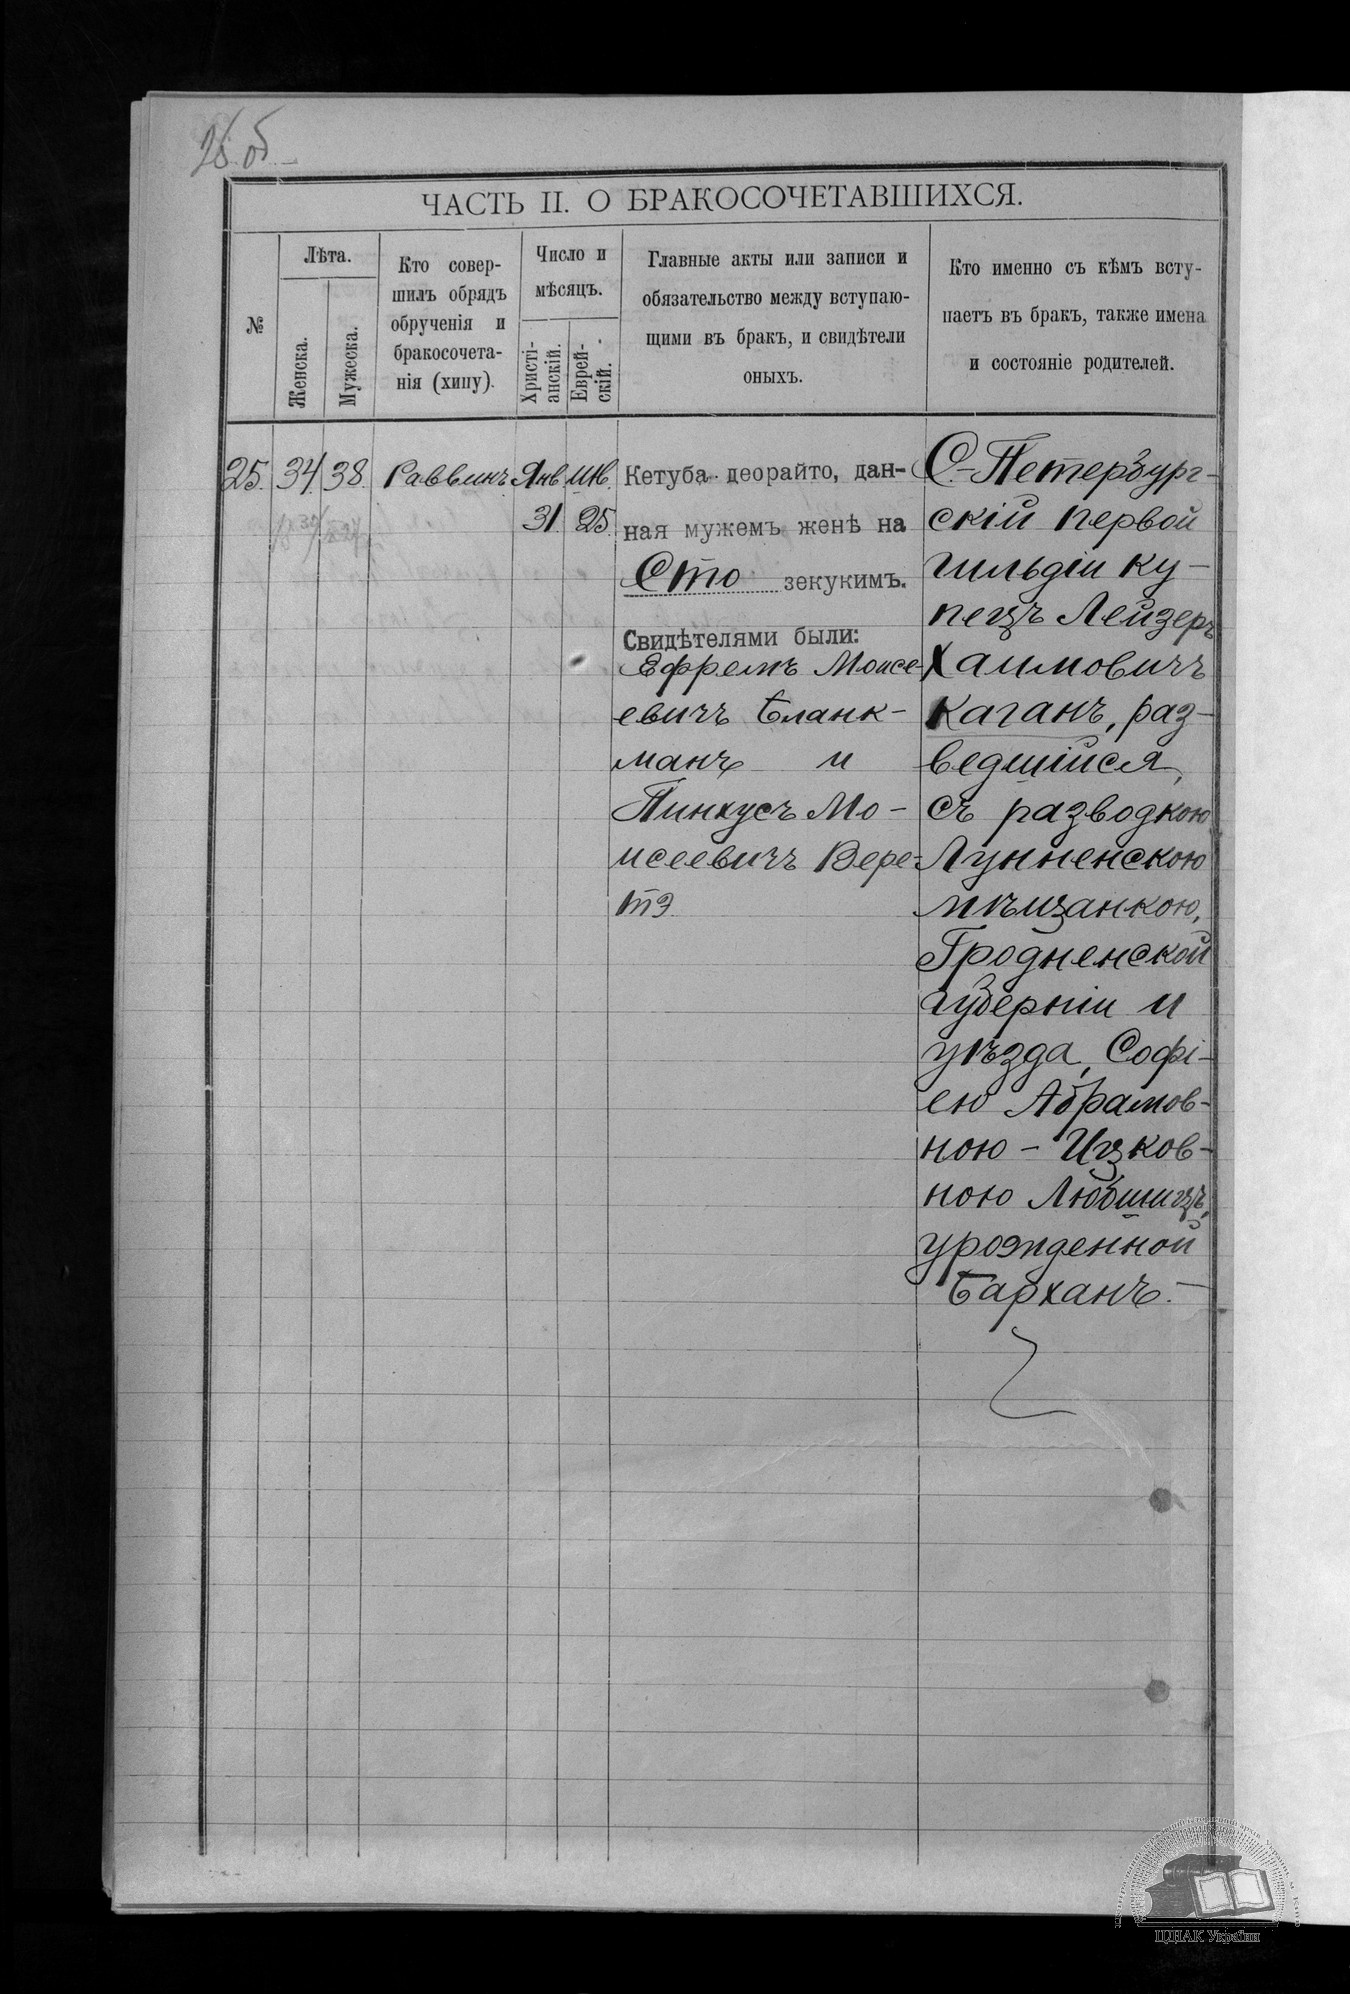 26 об
ЧАСТЬ II. О БРАКОСОЧЕТАВШИХСЯ.
№
Лѣта.
Женска.
Мужеска.
Кто совер-
шилъ обрядъ
обрученія и
бракосочета-
нія (хипу).
Число и
мѣсяцъ.
Христі-
анскій.
Еврей-
скій.
Главные акты или записи и
обязательство между вступаю-
щими въ брак, и свидѣтели
оныхъ.
Кто именно съ кѣмъ всту-
паетъ въ бракъ, также имена
и состояніе родителей.
25. 34 38. Раввинъ Янв. Шв.
31 25
Кетуба деорайто, дан-
ная мужемъ женѣ на
Сто зекукимъ.
Свидѣтелями были:
Ефремъ Моисе-
евичъ Бланк-
манъ и
Пинхусъ Мо-
исеевичъ Вере-
тэ
С.-Петербург-
скій первой
гильдіи ку-
пецъ Лейзеръ
Хаимовичъ
Каганъ, раз-
ведшійся,
съ разводкою
Лунненскою
мѣщанкою,
Гродненской
губерніи и
уѣзда, Софі-
ею Абрамов-
ною-Ицков-
ною Любшицъ,
урожденной
Барханъ.-
ЦДІАК України